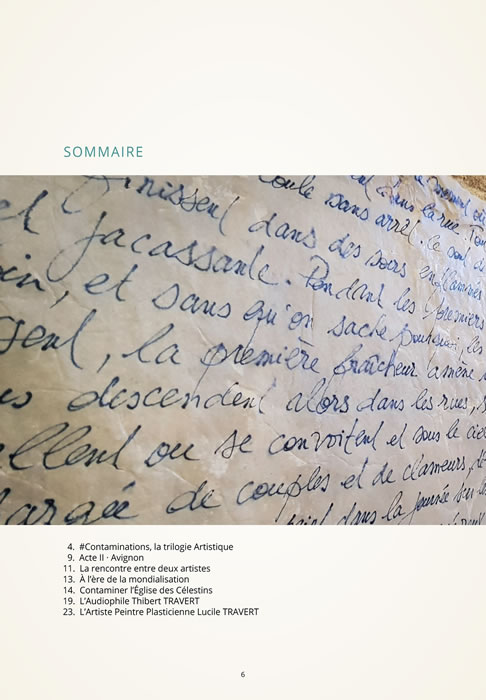 SOMMAIRE
finissent dans des soirs enflammés
coule sans arrêt, ce sont
dans la rue.
jacassante. Pendant les premiers
in, et sans qu'on sache pourquoi, les
gent, la première fraîcheur amène
descendent alors dans les rues, s
ellent ou se convoitent et sous le ciel
argée de couples et de clameurs,
dans la journée sur les
4. #Contaminations, la trilogie Artistique
9. Acte II · Avignon
11. La rencontre entre deux artistes
13. À l'ère de la mondialisation
14. Contaminer l'Église des Célestins
19. L'Audiophile Thibert TRAVERT
23. L'Artiste Peintre Plasticienne Lucile TRAVERT
6